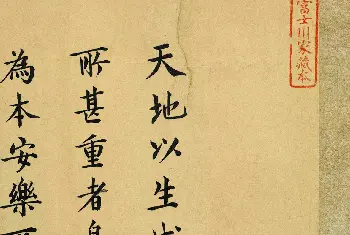 富士川家藏本
天地以生成
所甚重者身
為本安樂